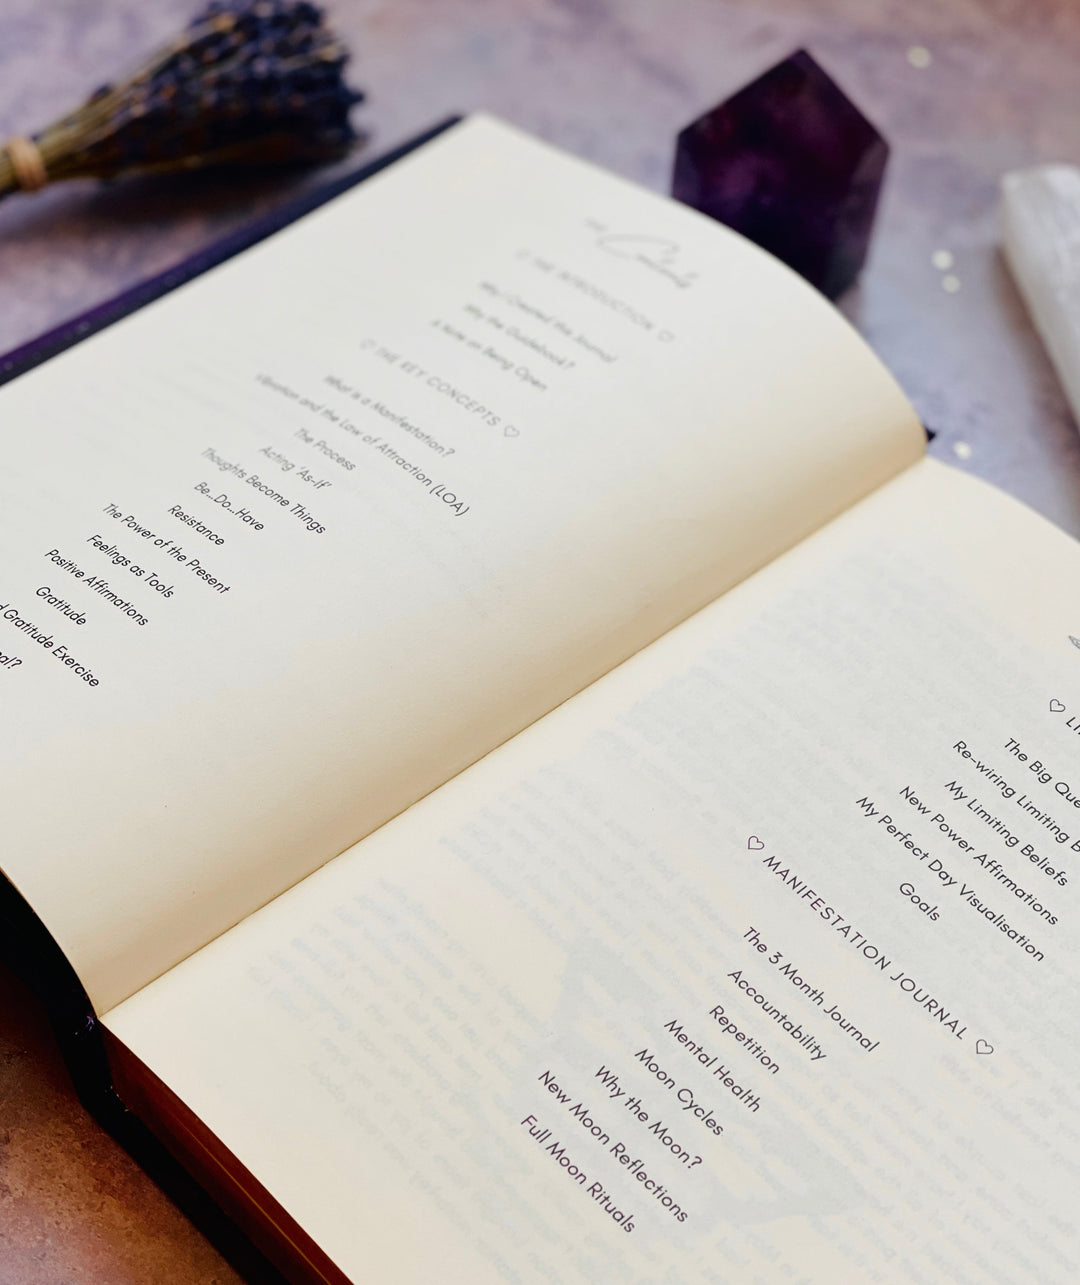 THE
Contents
♡ THE INTRODUCTION ♡
Why I Created this Journal
Why the Guidebook?
A Note on Being Open
♡ THE KEY CONCEPTS ♡
What is a Manifestation?
Vibration and the Law of Attraction (LOA)
The Process
Acting 'As-If'
Thoughts Become Things
Be...Do...Have
Resistance
The Power of the Present
Feelings as Tools
Positive Affirmations
Gratitude
Gratitude Exercise
♡
The Big
Re-wiring Limiting
My Limiting Beliefs
New Power Affirmations
My Perfect Day Visualisation
Goals
♡ MANIFESTATION JOURNAL ♡
The 3 Month Journal
Accountability
Repetition
Mental Health
Moon Cycles
Why the Moon?
New Moon Reflections
Full Moon Rituals